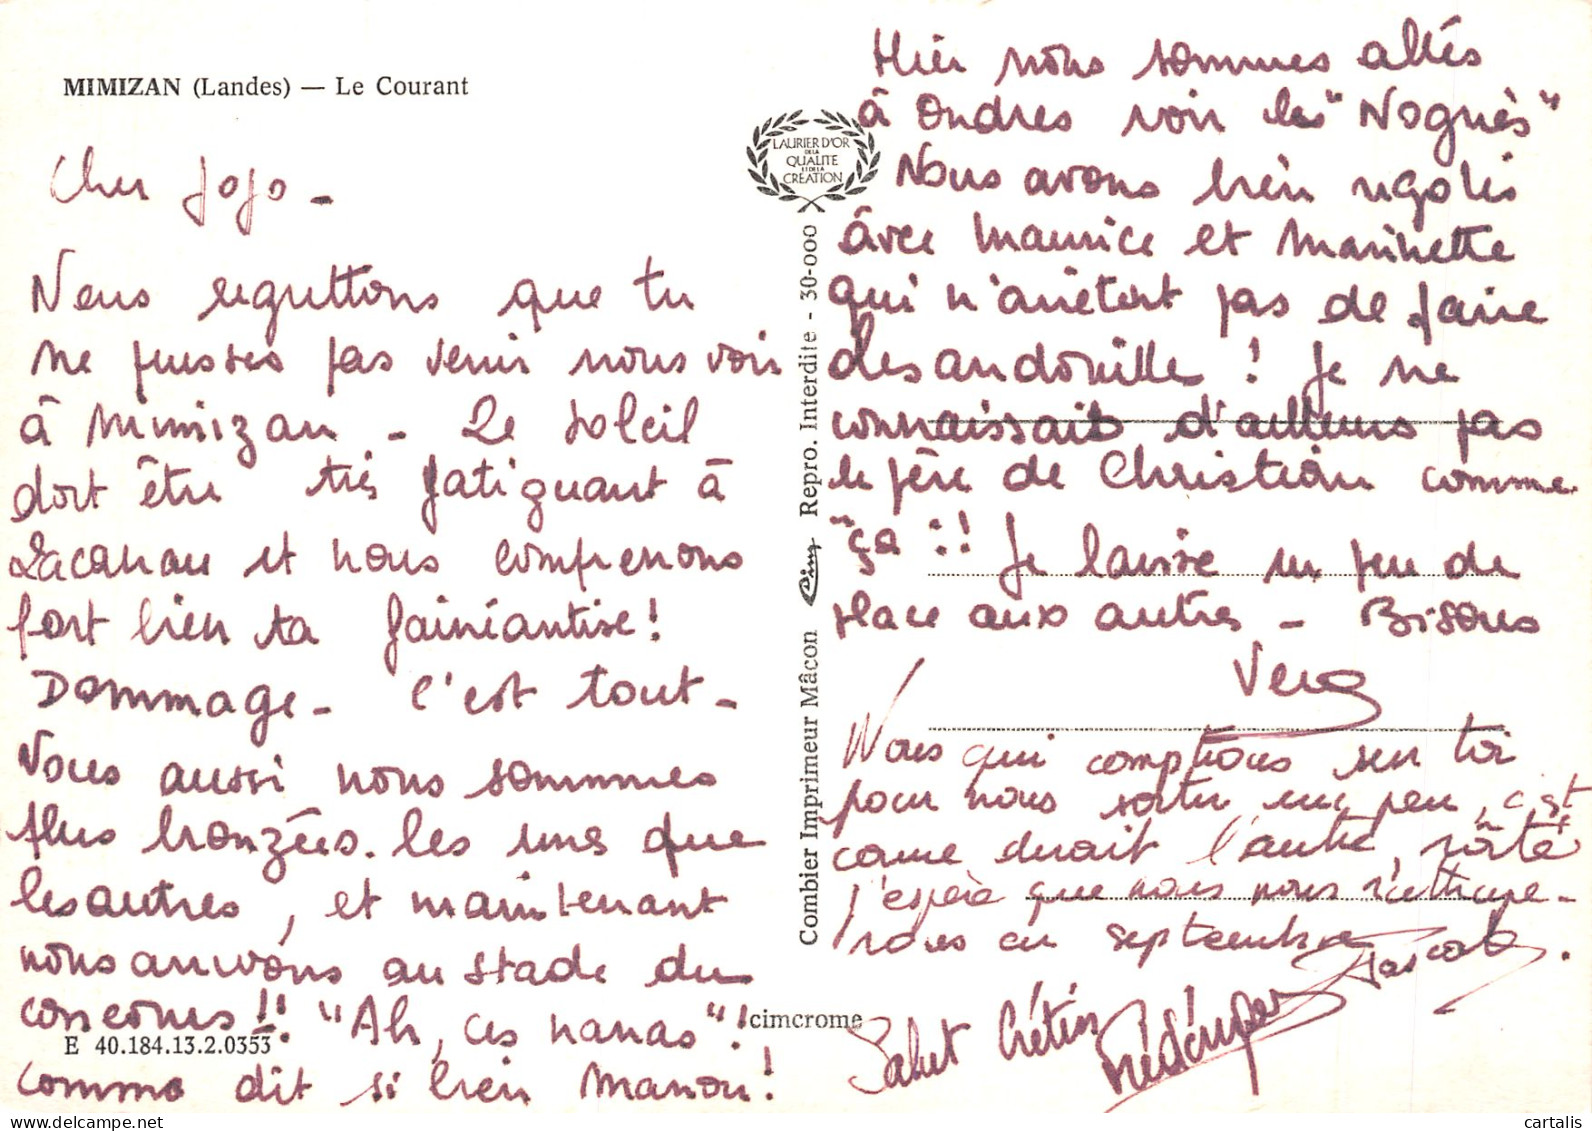 MIMIZAN (Landes) — Le Courant
Cher Jojo -
Nous regrettons que tu
ne puisses pas venir nous voir
à Mimizan - Le soleil
doit être très fatiguant à
Lacanau et nous comprenons
fort bien ta fainéantise !
Dommage - C'est tout -
Nous aussi nous sommes
plus bronzées les unes que
les autres, et maintenant
nous arrivons au stade du
cosseones !! "Ah, ces nanas" !
E 40.184.13.2.0353
comme dit si bien Manou !
LAURIER D'OR
DE LA
QUALITE
ET DE LA
CREATION
Combier Imprimeur Mâcon Cim Repro. Interdite - 30-000
cimcrome
Hier nous sommes allés
à Ondres voir les "Nogués"
Nous avons bien rigolés
avec Maurice et Marinette
qui n'arrêtent pas de faire
des andouilles ! Je ne
connaissais d'ailleurs pas
le père de Christian comme
"ça" !! Je laisse un peu de
place aux autres - Bisous
Vero
Nous qui comptions sur toi
pour nous sortir un peu, c'est
comme durait l'autre, rôté
j'espère que nous nous r'attrape-
rons en septembre Pascale.
Salut Crétin
Frédérique
cartalis